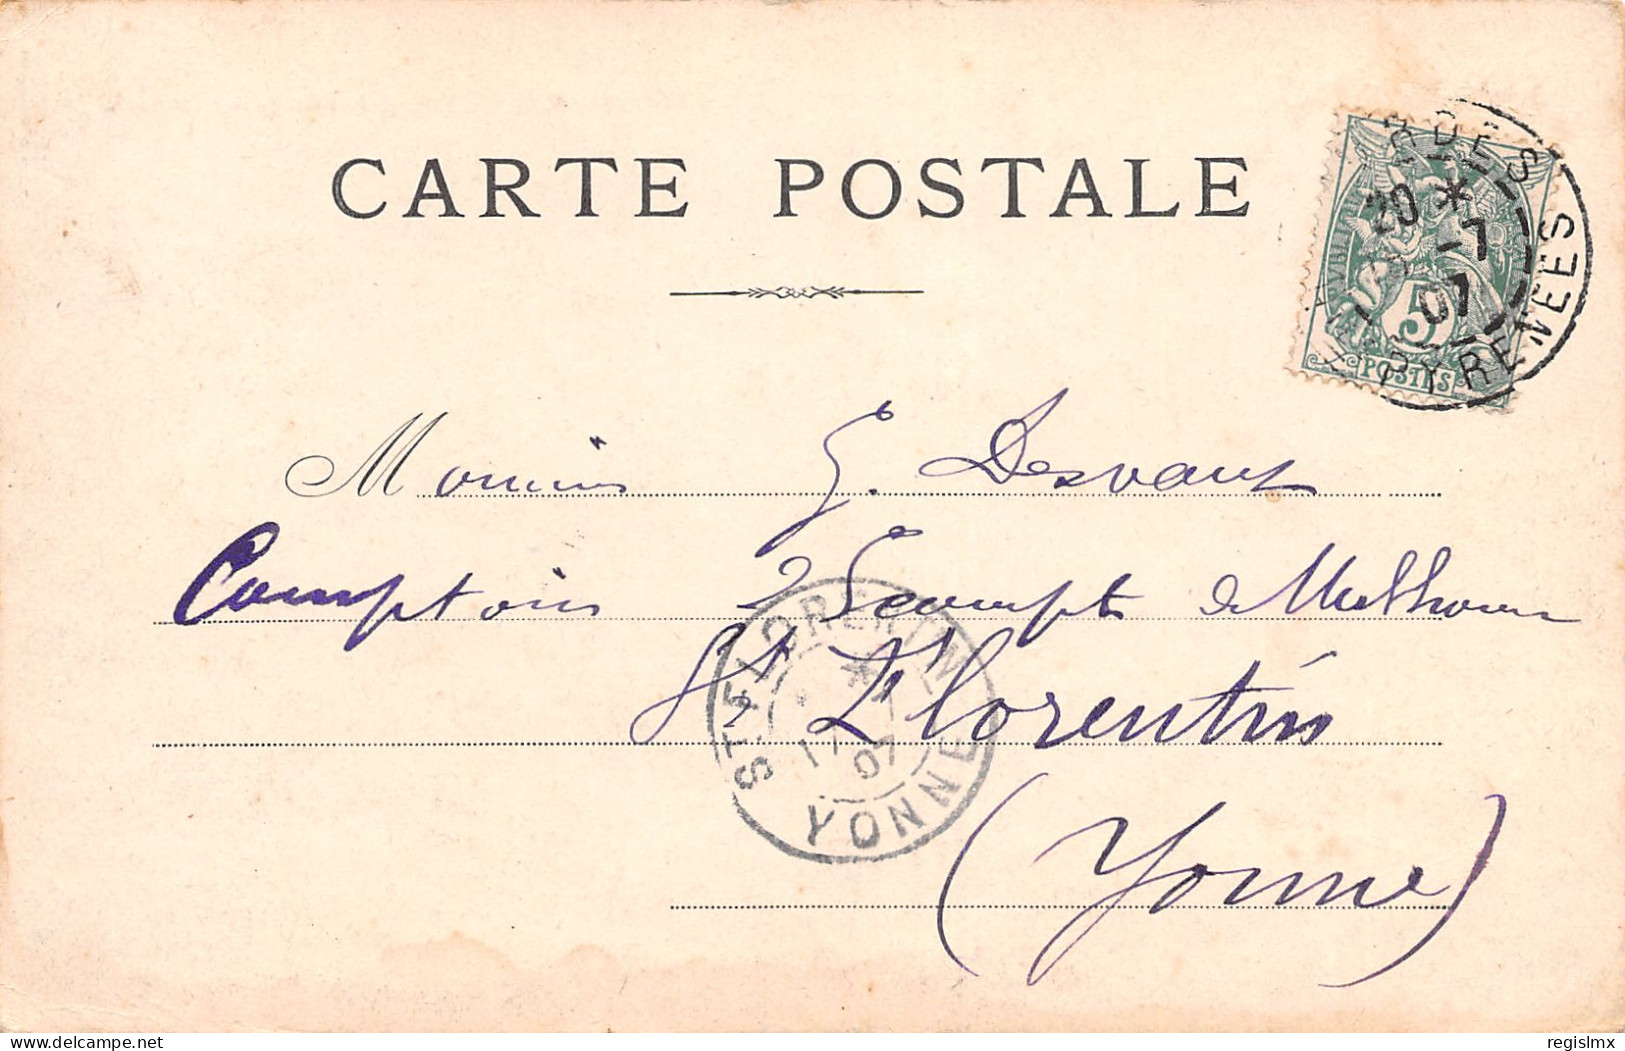 CARTE POSTALE
RDES
20 *
-7
07
PYRENEES
5
POSTES
Monsieur G. Desvaux
Comptoir d'Escompte de Mulhouse
St Florentin
(Yonne)
ST FLORENTIN
*
17 -7
07
YONNE
delcampe.net
regislmx